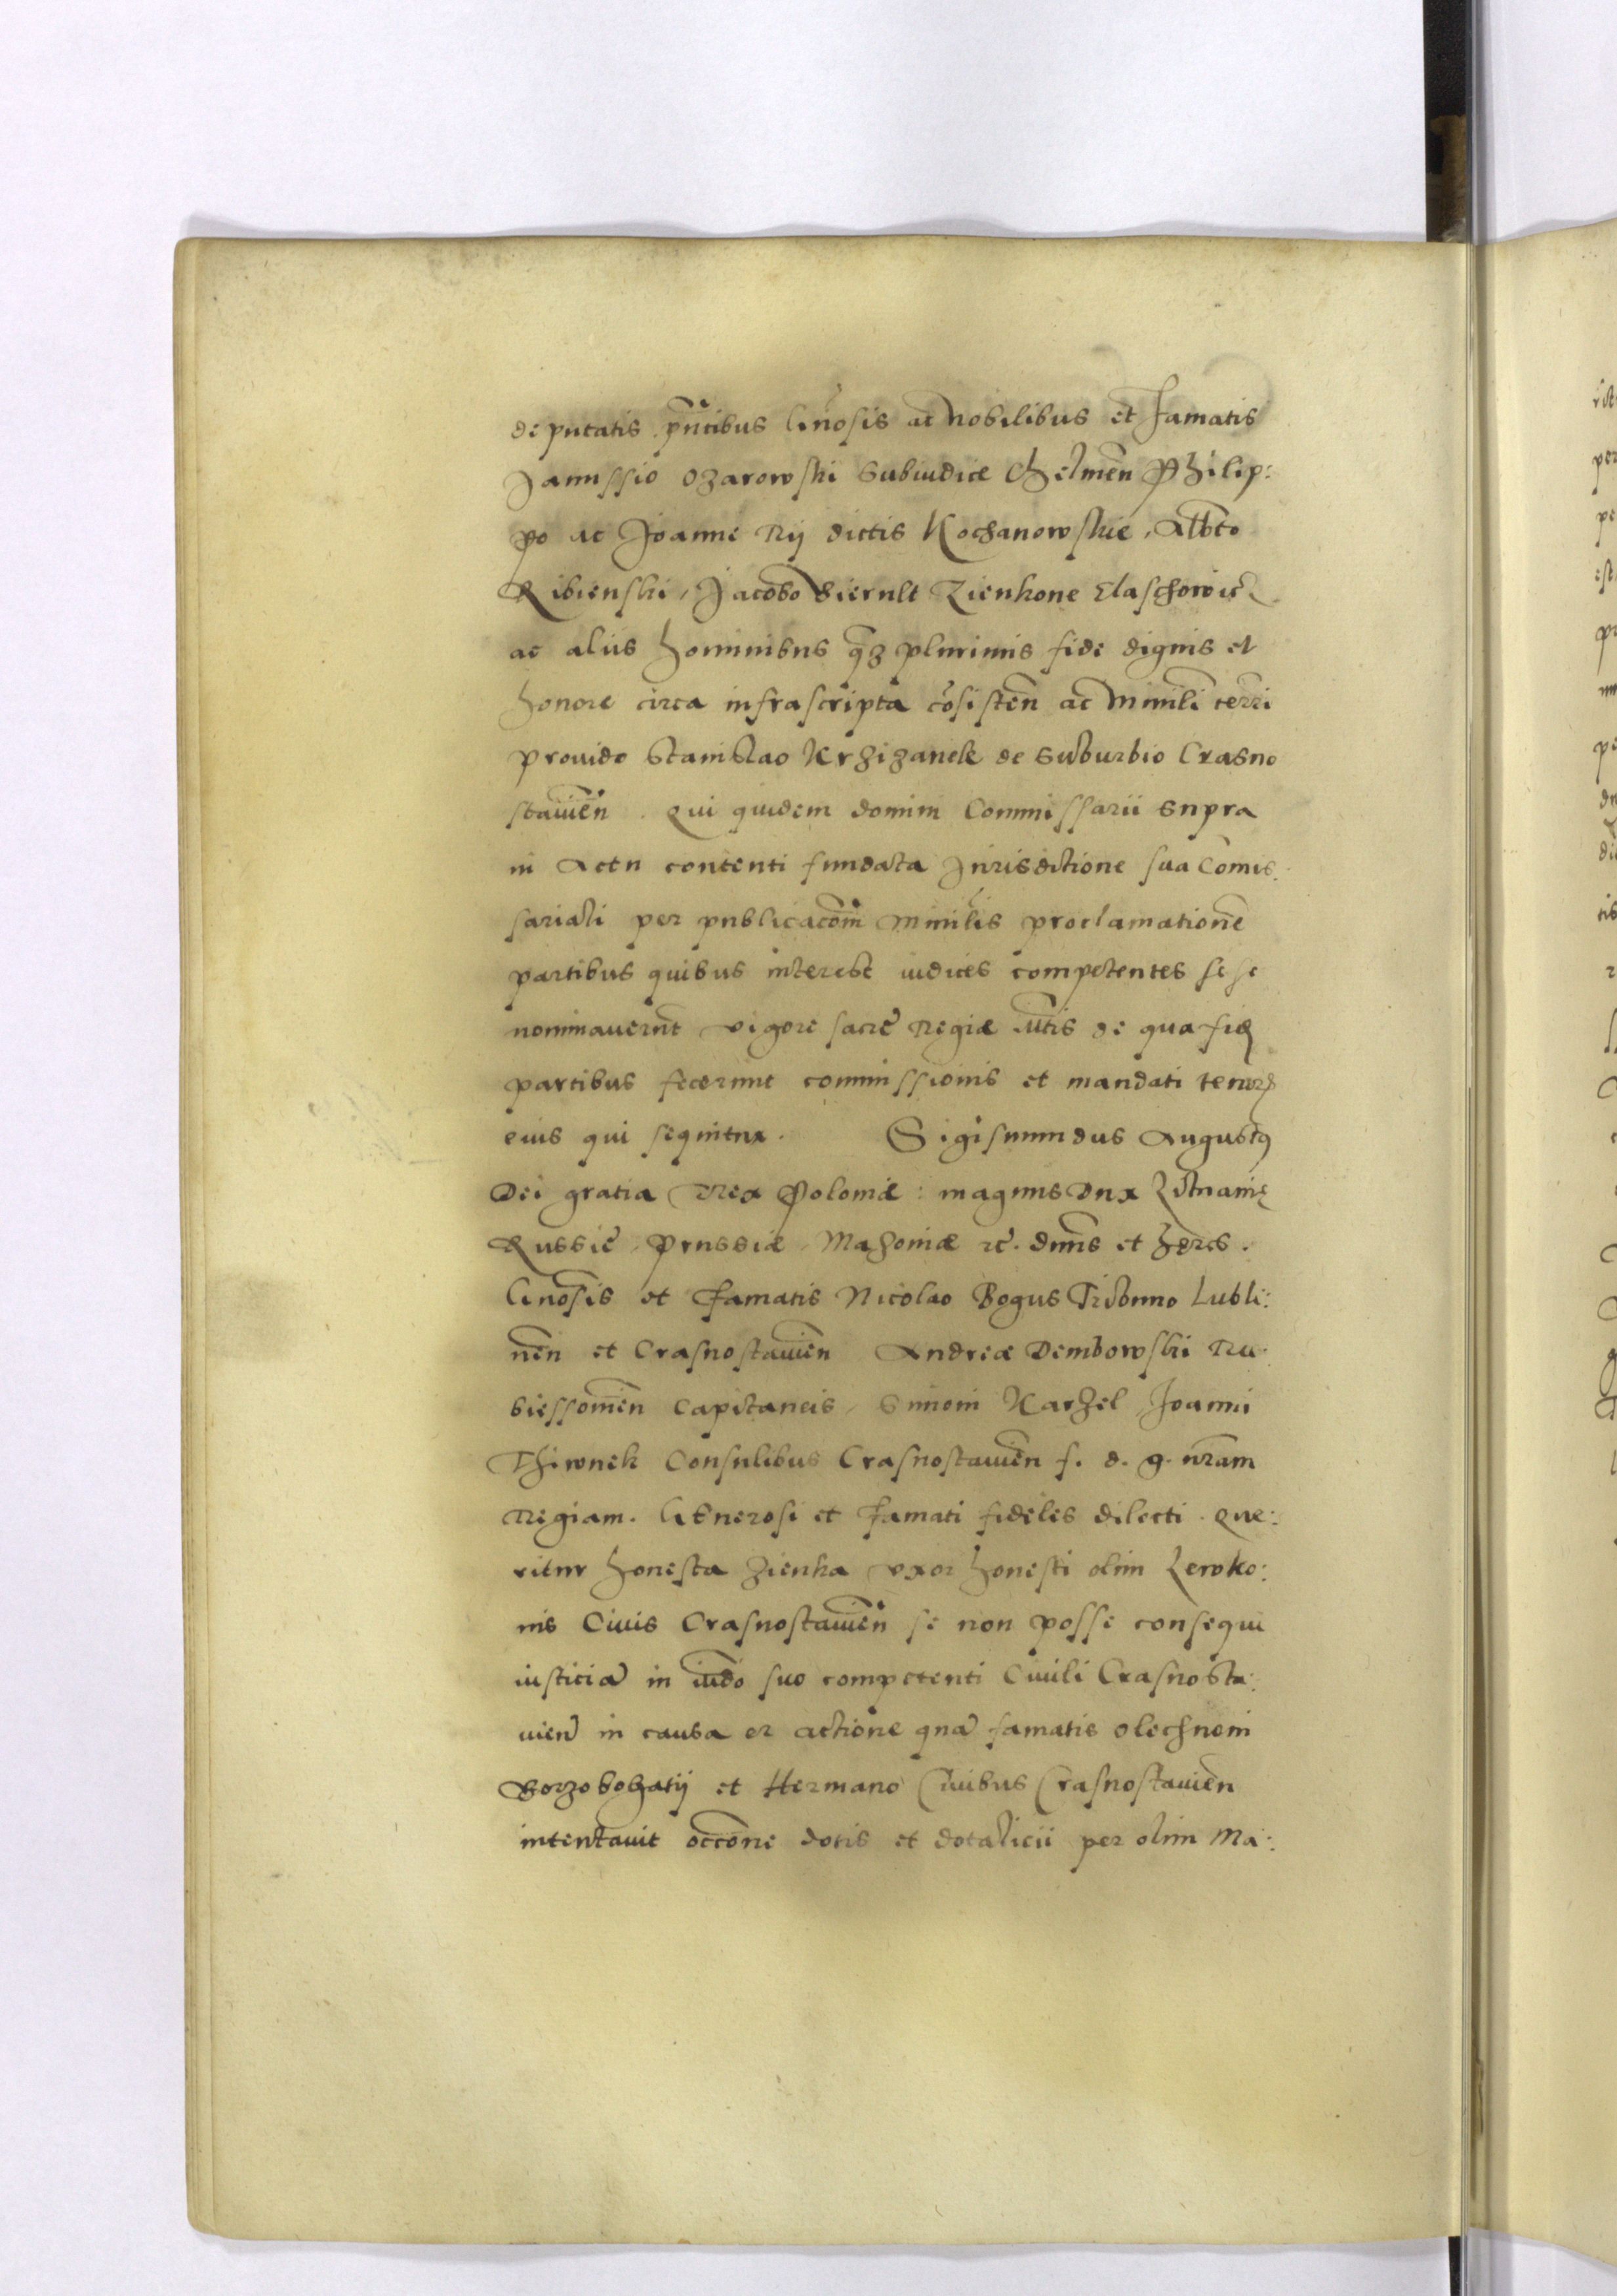 deputatis pñtibus Gnosis ac Nobilibus et Famatis
Janussio Ozarowski Subiudice Chelmeñ Philip:
po ac Joanne Rij dictis Kochanowskie, Albto
Ribienski, Jacobo Biernlt Zienkone Elaschowic
ac aliis hominibus qz plurimis fide dignis et
honore circa infrascripta cõsisteñ ac Minili terri
prouido Stanislao Krzizanek de suburbio Crasno
stauieñ. Qui quidem domini Commissarii supra
in Actu contenti fundata Jurisdictione sua Comis:
sariali per publicacõm Minilis proclamatione
partibus quibus interest iudices competentes sese
nominauerunt vigore sacrę Regiæ Mtis de qua fid
partibus fecerunt commissionis et mandati tenor
eius qui sequitur. Sigismundus Augustq
Dei gratia Rex Poloniæ: magnus Dux Litnanię
Russię, Prussiæ, Mazoniæ rč. dnns et heres.
Gnosis et Famatis Nicolao Bogus Tribuno Lubli:
neñ et Crasnostauieñ Andreæ Dembowski Ru
biessouieñ Capitaneis, Simoni Karzel, Joanni
Thiwnek Consulibus Crasnostauieñ f. d. g. nrãm
Regiam. GEnerosi et Famati fideles dilecti. Que:
ritur honesta Zienka vxor honesti olim Lewko:
nis Ciuis Crasnostauieñ se non posse consequi
iusticiã in iudõ suo competenti Ciuili Crasnosta:
uieñ in causa et actione quã famatis Olechnoni
Borzobohatij et Hermano Ciuibus Crasnostauieñ
intentauit occõne dotis et dotalicii per olim Ma: